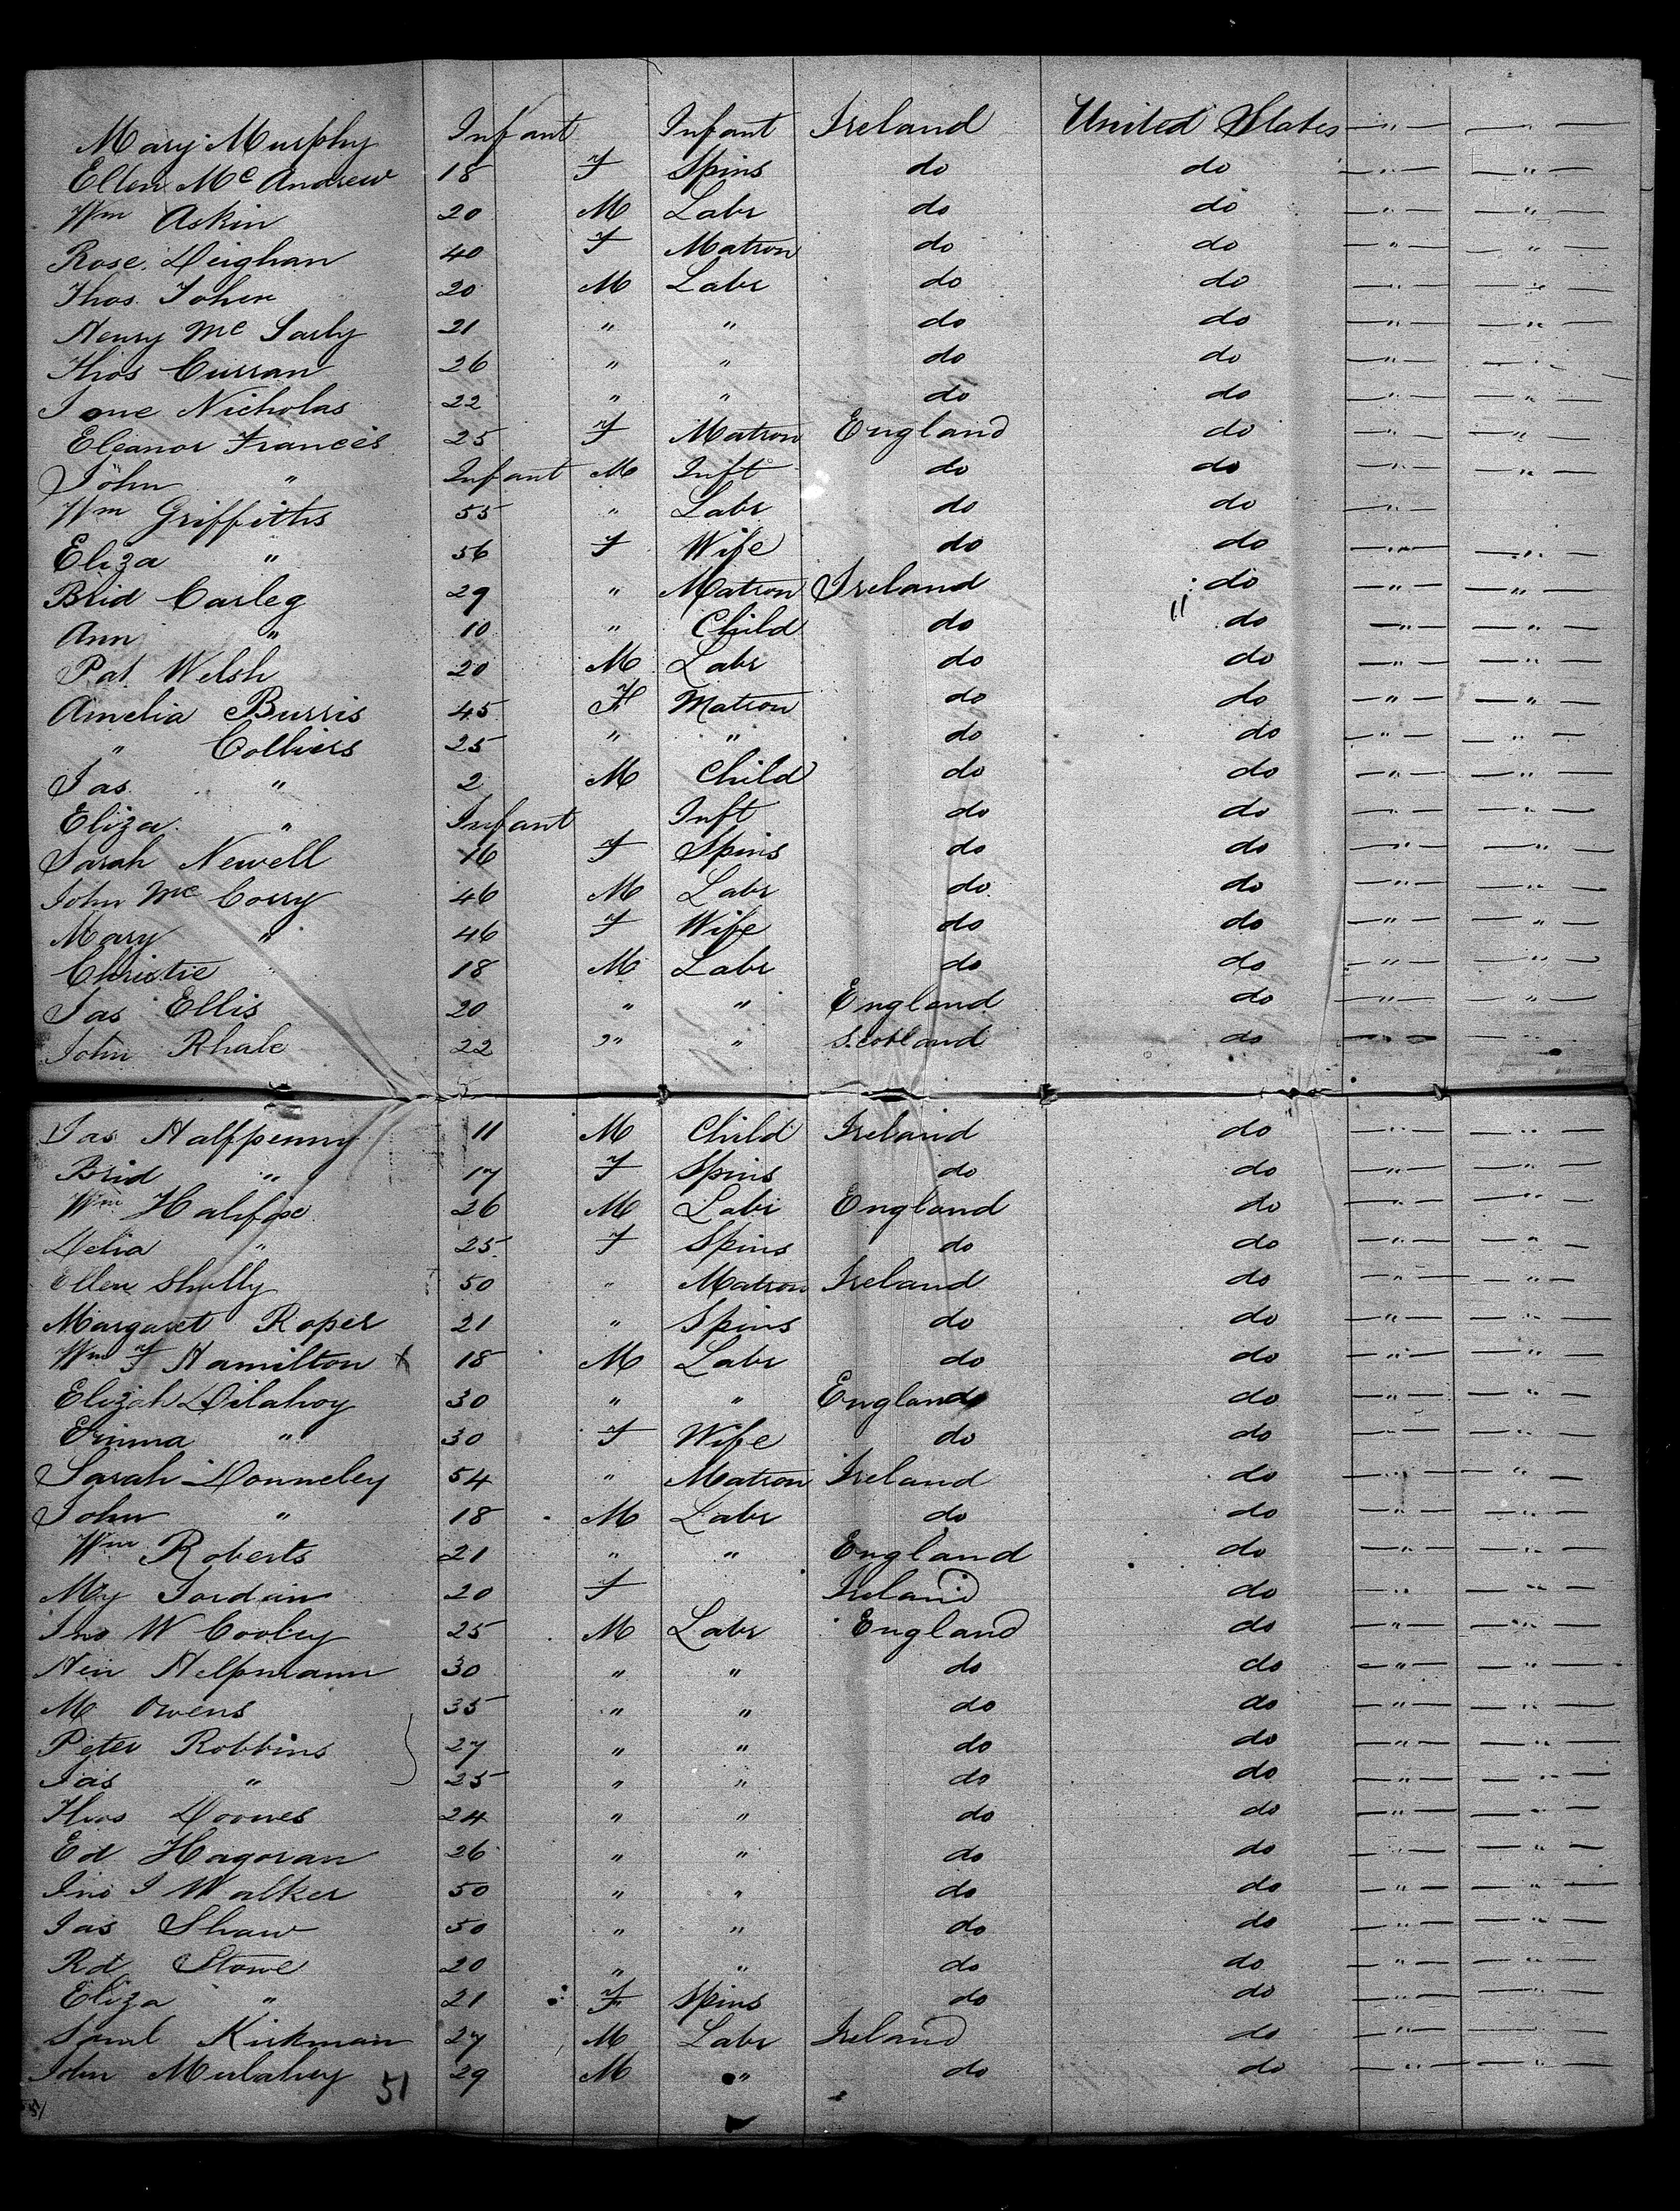 Mary Murphy Infant Infant Ireland United States — " — — " —
Ellen Mc Andrew 18 F Spins do do — " — — " —
Wm Askin 20 M Labr do do — " — — " —
Rose Deighan 40 F Matron do do — " — — " —
Thos. Toher 20 M Labr do do — " — — " —
Henry Mc Sarly 21 " " do do — " — — " —
Thos Curran 26 " " do do — " — — " —
Jane Nicholas 22 " " do do — " — — " —
Eleanor Frances 25 F Matron England do — " — — " —
John " Infant M Inft do do — " — — " —
Wm Griffiths 55 " Labr do do — " —
Eliza " 56 F Wife do do — " — — " —
Brid Carleg 29 " Matron Ireland do — " — — " —
Ann " 10 " Child do " do — " — — " —
Pat Welsh 20 M Labr do do — " — — " —
Amelia Burris 45 F Matron do do — " — — " —
" Colliers 25 " " do do — " — — " —
Jas " 2 M Child do do — " — — " —
Eliza " Infant Inft do do — " — — " —
Sarah Newell 16 F Spins do do — " — — " —
John Mc Corry 46 M Labr do do — " — — " —
Mary " 46 F Wife do do — " — — " —
Christie 18 M Labr do do — " — — " —
Jas Ellis 20 " " England do — " — — " —
John Rhale 22 " " Scotland do — " — — " —
Jas Halfpenny 11 M Child Ireland do — " — — " —
Brid " 17 F Spins do do — " — — " —
Wm Halifax 26 M Labr England do — " — — " —
Delia " 25 F Spins do do — " — — " —
Ellen Shully 50 " Matron Ireland do — " — — " —
Margaret Roper 21 " Spins do do — " — — " —
Wm F Hamilton x 18 M Labr do do — " — — " —
Elizah Dilahoy 30 " " England do — " — — " —
Emma " 30 F Wife do do — " — — " —
Sarah Donneley 54 " Matron Ireland do — " — — " —
John " 18 M Labr do do — " — — " —
Wm Roberts 21 " " England do — " — — " —
My Jordan 20 F Ireland do — " — — " —
Jno W Cooley 25 M Labr England do — " — — " —
Hen Helpmann 30 " " do do — " — — " —
M Owens 35 " " do do — " — — " —
Peter Robbins 27 " " do do — " — — " —
Jas " 25 " " do do — " — — " —
Thos Doones 24 " " do do — " — — " —
Ed Hagoran 26 " " do do — " — — " —
Jno J Walker 50 " " do do — " — — " —
Jas Shaw 50 " " do do — " — — " —
Rd Stowe 20 " " do do — " — — " —
Eliza " 21 F Spins do do — " — — " —
Saml Kirkman 27 M Labr Ireland do — " — — " —
John Mulahey 29 M " do do — " — — " —
51
51